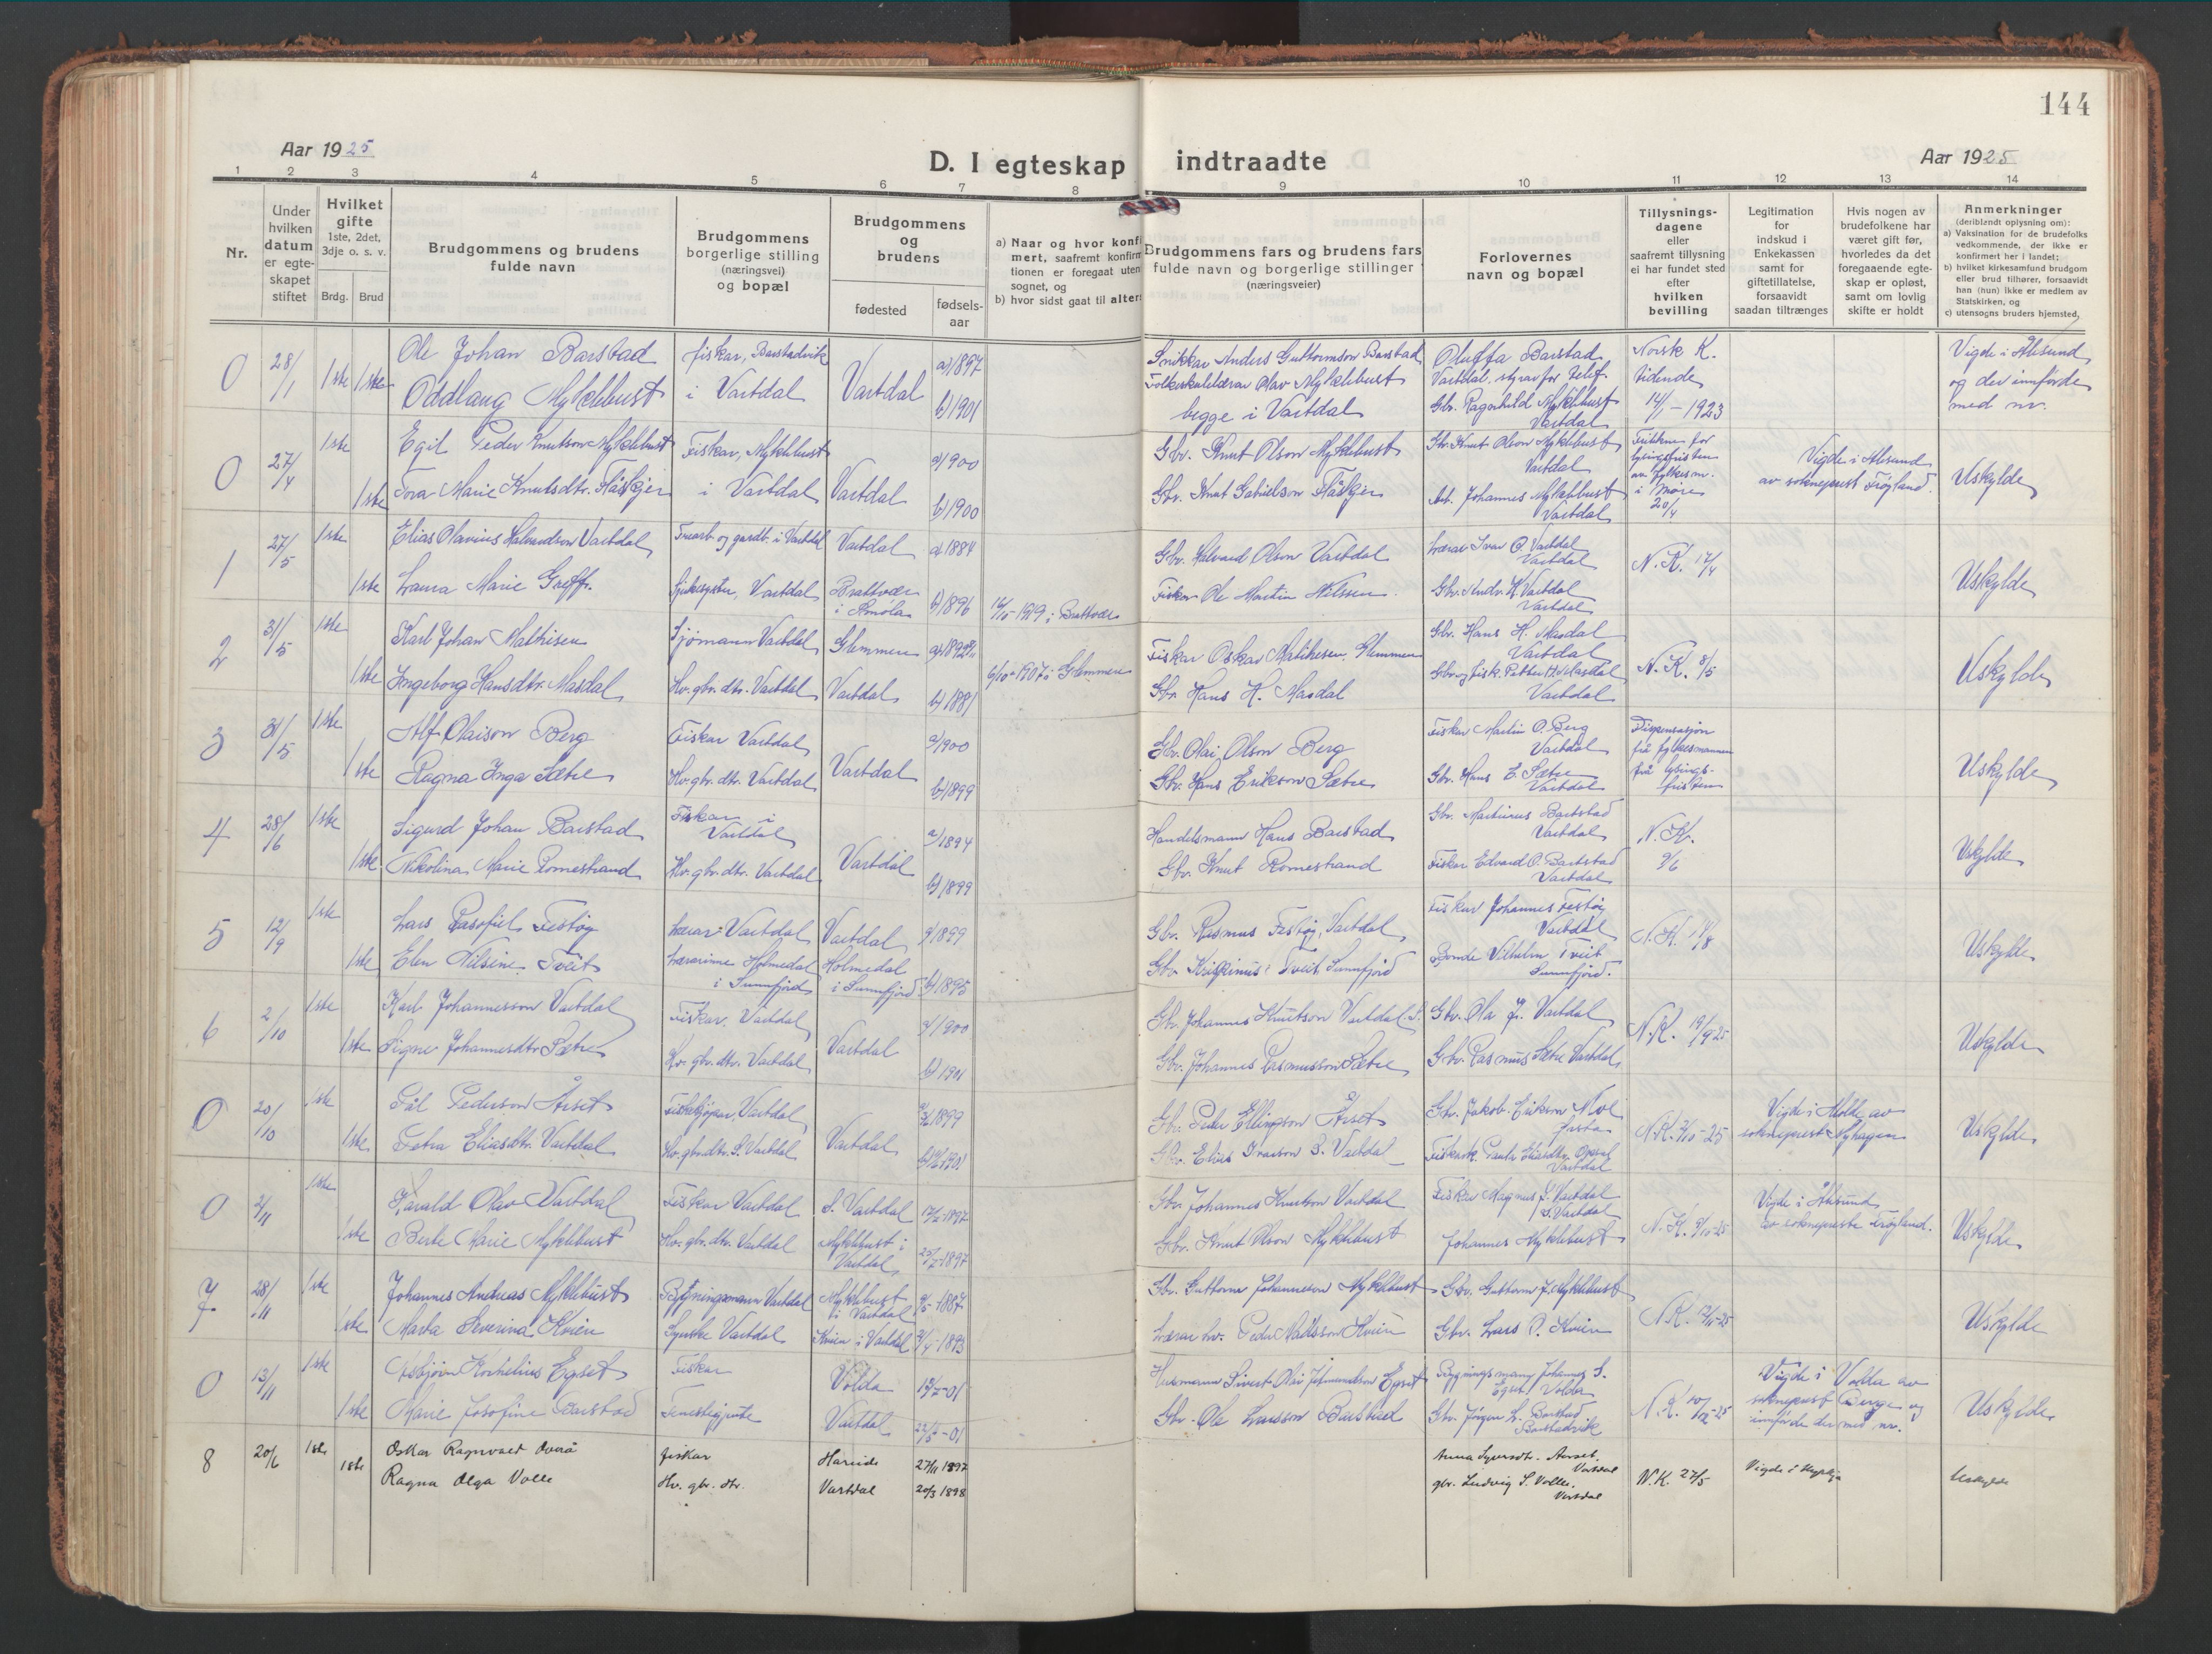 144
Aar 1925
D. I egteskap indtraadte
Aar 1925
1 2 3 4 5 6 7 8 9 10 11 12 13 14
Nr.
Under hvilken datum er egteskapet stiftet
Hvilket gifte 1ste, 2det, 3dje o. s. v.
Brdg. Brud
Brudgommens og brudens fulde navn
Brudgommens borgerlige stilling (næringsvei) og bopæl
Brudgommens og brudens
fødested
fødsels-aar
a) Naar og hvor konfi
mert, saafremt konfirm
tionen er foregaat uten
sognet, og
b) hvor sidst gaat til alters
Brudgommens fars og brudens fars fulde navn og borgerlige stillinger (næringsveier)
Forlovernes navn og bopæl
Tillysnings-dagene eller saafremt tillysning ei har fundet sted efter hvilken bevilling
Legitimation for indskud i Enkekassen samt for giftetillatelse, forsaavidt saadan tiltrænges
Hvis nogen av brudefolkene har været gift før, hvorledes da det foregaaende egteskap er opløst, samt om lovlig skifte er holdt
Anmerkninger (deriblandt oplysning om):
a) Vaksination for de brudefolks vedkommende, der ikke er konfirmert her i landet;
b) hvilket kirkesamfund brudgom eller brud tilhører, forsaavidt han (hun) ikke er medlem av Statskirken, og
c) utensogns bruders hjemsted.
0 28/1 1ste 1ste Ole Johan Barstad fiskar, Barstadvik Vartdal a) 1897 Snikkar Anders Guttormson Barstad Oluffa Barstad Norsk K. Vigde i Ålesund
Oddlaug Myklebust i Vartdal b) 1901 Folkeskulelærar Olav Myklebust Vartdal, styrar for telef. tidende og der innførde
begge i Vartdal Gbr. Ragnhild Myklebust Vartdal 14/1-1923 med nr.
0 27/4 1ste Egil Peder Knutson Myklebust Fiskar, Myklebust Vartdal a) 1900 Gbr. Knut Olson Myklebust Gbr. Knut Olson Myklebust Vartdal Vigde i Ålesund
1ste Tora Marie Knutsdtr. Flåskjer i Vartdal b) 1900 Gbr. Knut Gabrielson Flåskjer Arb. Johannes Myklebust Vartdal i Møre 20/4 av sokneprest Frøyland. Uskylde
1 27/5 1ste Elias Olavius Halvardson Vartdal og gardb. i Vartdal Vartdal a) 1884 Gbr. Halvard Olson Vartdal Lærar Ivar O. Vartdal Vartdal N. K. 17/4 Uskylde
1ste Laura Marie Greff. Sjukesyster, Vartdal Brattvær i Smøla b) 1896 1919 i Brattvær Fiskar Ole Martin Nilssen. Gbr. Andr. H. Vartdal Vartdal
2 31/5 1ste Karl Johan Mathisen Sjømann Vartdal Glemmen a) 1892 6/10-1907 i Glemmen Fiskar Oskar Mathisen, Glemmen Gbr. Hans H. Masdal Vartdal N. K. 8/5 Uskylde
1ste Ingeborg Hansdtr. Masdal Hv. gbr. dtr. Vartdal Vartdal b) 1881 Gbr. Hans H. Masdal Gbr. og fisk. Petter H. Masdal Vartdal
3 31/5 1ste Alf Olaison Berg Fiskar Vartdal Vartdal a) 1900 Gbr. Olai Olson Berg Fiskar Martin O. Berg Vartdal Dispensasjon frå fylkesmannen Uskylde
1ste Ragna Inga Sætre Hv. gbr. dtr. Vartdal b) 1899 Gbr. Hans Erikson Sætre Gbr. Hans E. Sætre Vartdal frå lysings-fristen
4 28/6 1ste Sigurd Johan Barstad Fiskar i Vartdal Vartdal a) 1894 Handelsmann Hans Barstad Gbr. Martinus Barstad Vartdal N. K. Uskylde
1ste Nikolina Marie Romestrand Hv. gbr. dtr. Vartdal b) 1899 Gbr. Knut Romestrand Fiskar Edvard O. Barstad Vartdal 9/6
5 12/9 1ste Lars Rasofiel Festøy Lærar Vartdal Vartdal a) 1899 Gbr. Rasmus Festøy, Vartdal Fiskar Johannes Festøy Vartdal N. K. Uskylde
1ste Elen Nilsine Tveit Lærarinne Holmedal i Sunnfjord Holmedal i Sunnfjord b) 1895 Gbr. Tveit, Sunnfjord Bonde Vilhelm Tveit Sunnfjord.
6 2/10 1ste Karl Johannesson Vartdal Fiskar. Vartdal Vartdal a) 1900 Gbr. Johannes Knutson Vartdal S. Gbr. Ola J. Vartdal N. K. 19/9-25 Uskylde
1ste Signe Johannesdtr. Sætre Hv. gbr. dtr. Vartdal b) 1901 Gbr. Johannes Rasmusson Sætre Gbr. Rasmus Sætre Vartdal
0 20/10 1ste Pål Pederson Årset Fiskekjøpar, Vartdal Vartdal 1899 Gbr. Peder Ellingson Årset Gbr. Jakob Erikson N. K. 3/10-25 Vigde i Molde av Uskylde
1ste Petra Eliasdtr. Vartdal Hv. gbr. dtr. S. Vartdal b) 1901 Gbr. Elias Ivarson S. Vartdal Paula Eliasdtr. Vartdal sokneprest Nyhagen
0 3/11 1ste Harald Olav Vartdal Fiskar Vartdal S. Vartdal 1897 Gbr. Johannes Knutson Vartdal Fiskar Magnus J. Vartdal S. Vartdal N. K. 25 Vigde i Ålesund Uskylde
1ste Berte Marie Myklebust Hv. gbr. dtr. Vartdal Myklebust i Vartdal 1897 Gbr. Knut Olson Myklebust Johannes Myklebust av sokneprest Frøyland.
7 28/11 1ste Johannes Andreas Myklebust Bygningsmann Vartdal Myklebust i Vartdal 1887 Gbr. Guttorm Johanneson Myklebust Gbr. Guttorm J. Myklebust N. K. 12/11-25 Uskylde
1ste Marta Severina Kvien Syerske Vartdal Kvien i Vartdal 1893 Lærar Peder Kvien Gbr. Lars P. Kvien
0 13/11 1ste Asbjørn Kornelius Egset Fiskar Volda 01 Husmann Sivert Olai Egset Bygningsmann Johannes S. Egset Volda N. K. 25 Vigde i Volda av Uskylde
1ste Marie Josofine Barstad Tenestegjente Vartdal 01 Gbr. Ole Larsson Barstad Gbr. Jørgen L. Barstad Barstadvik sokneprest Berge og innførde der med nr.
8 20/6 1ste Oskar Ragnvald Overå fiskar Hareid 27/11 1897 Anna Syversdtr. Aarset Vartdal N. K. 27/5 Uskylde
1ste Ragna Olga Volle Hv. gbr. dtr. Vartdal 20/3 1898 gbr. Ludvig S. Volle. Vartdal